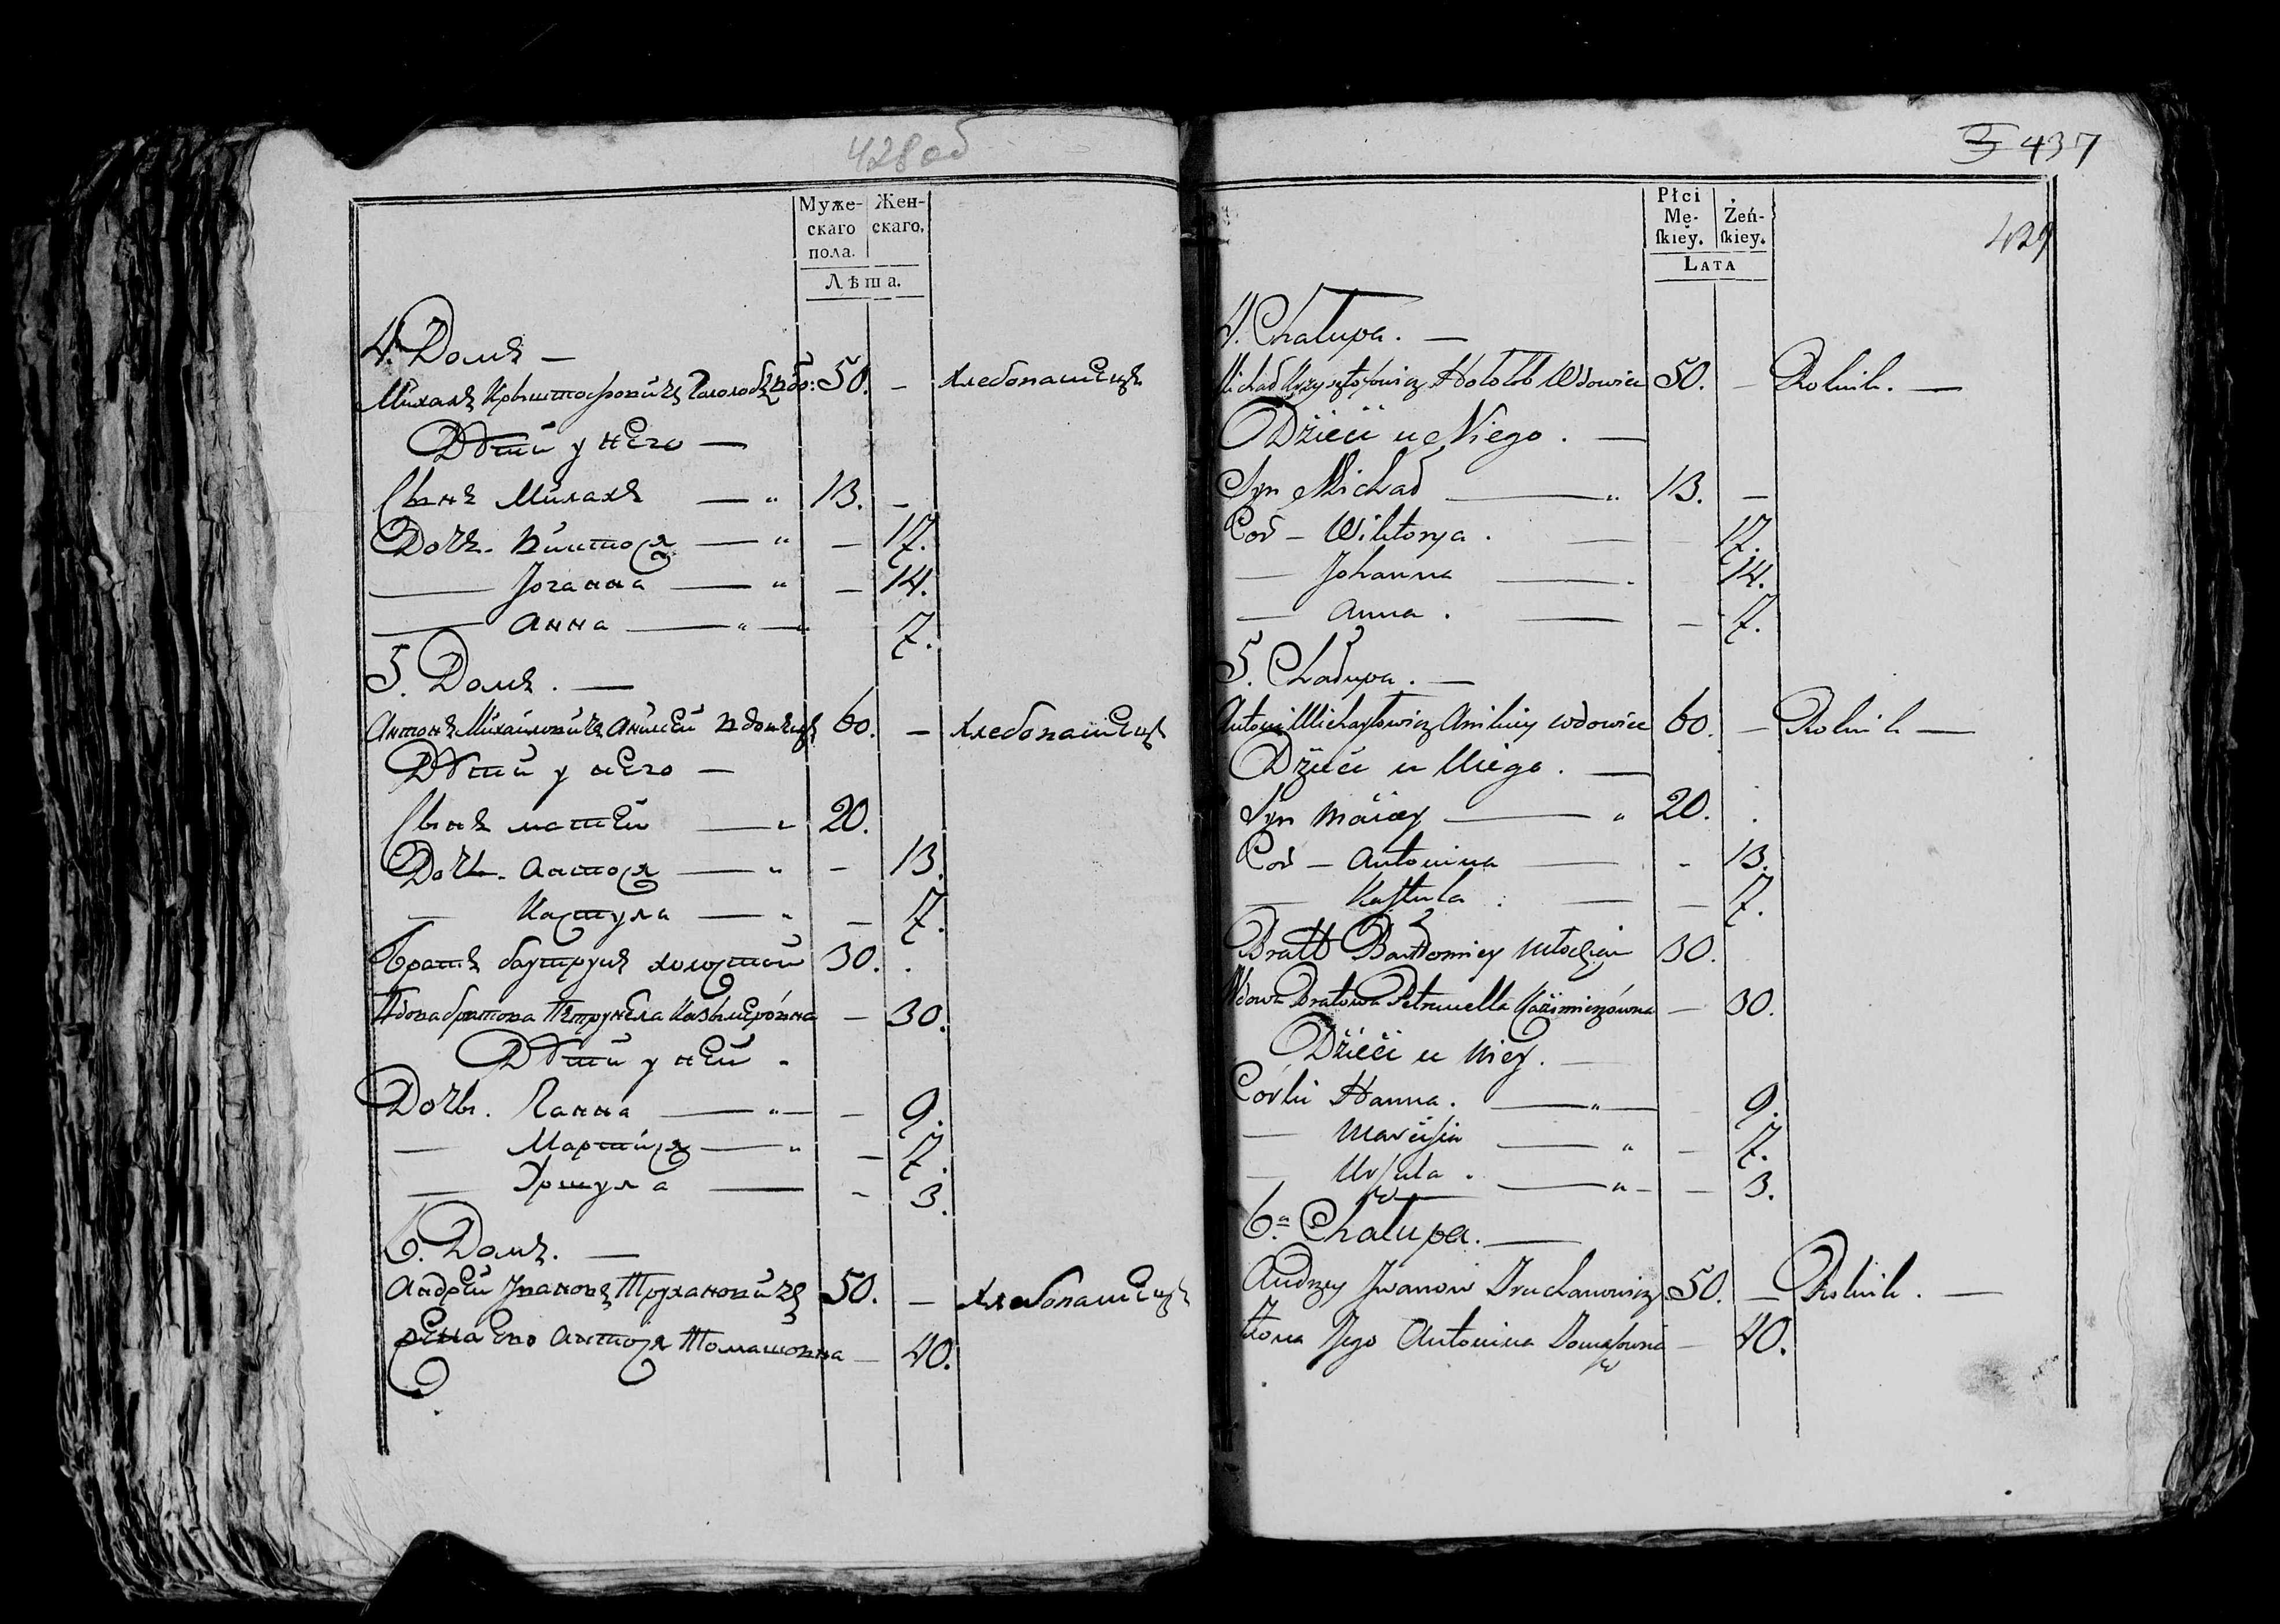 428 об
Муже-
скаго
пола.
Жен-
скаго.
Лѣта.
4. Домъ —
Михалъ Крыштофовичъ Гололобъ вдо: 50. — хлебопашецъ
Дѣти у него —
Сынъ Михалъ — „ 13. —
Дочь. Виктося — „ — 17.
— Іоганна — „ — 14.
— Анна — „ — 7.
5. Домъ. —
Антонъ Михайловичъ Аникей вдовецъ 60. — хлебопашецъ
Дѣти у него —
Сынъ матей — „ 20.
Дочь. Антося — „ — 13.
— Кастуля — „ — 7.
Братъ баутрукъ холостой 30. .
Вдова братова Петрунеля Казимеровна — 30.
Дѣти у ней -
Дочьи. Ганна — „ — — 9.
— Мартися — „ — 7.
— Уршуля — - 3.
6. Домъ. —
Андрей Ивановъ Трухановичъ 50. — хлебопашецъ
жена Его Антося Томашовна — 40.
5 437
429
Płci
Mę-
ſkiey.
Żeń-
ſkiey.
LATA
4. Chałupa. —
Michał Krzysztofowicz Hołołob Wdowiec 50. — Rolnik. —
Dzieci u Niego. —
Syn Michał — „ 13. —
Cór — Wiktorya. — — 17.
— Johanna — . 14.
— Anna. — — 7.
5. Chałupa. —
Antoni Michayłowicz Anikiey wdowiec 60. — Rolnik —
Dzieci u Niego. —
Syn Maciey — „ 20. .
Cór — Antonina — - 13.
— Kaſtula . — — 7.
Bratt Bartłomiey Młodzian 30.
Wdowa Bratowa Petrunella Kaźimirzówna — 30.
Dzieci u Niey. —
Córki Hanna. — „ — 9.
— Marciſia — „ — 7.
— Urſula. — „ — — 3.
6.ª Chałupa. —
Andrzey Jwanow Truchanowicz 50. — Rolnik. —
Żona Jego Antonina Tomaſzowna — 40.